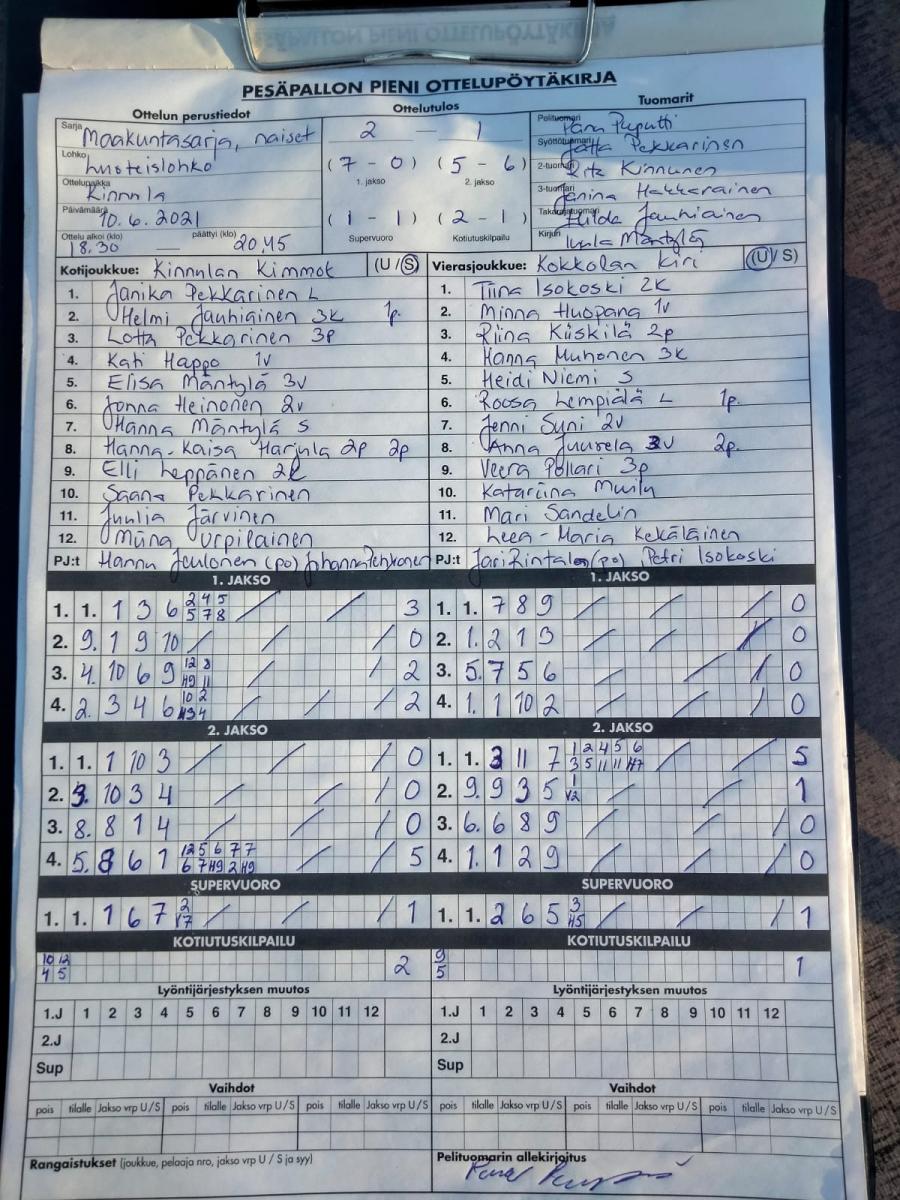 PESÄPALLON PIENI OTTELUPÖYTÄKIRJA
Ottelun perustiedot
Ottelutulos
Tuomarit
Sarja Maakuntasarja, naiset
Lohko luoteislohko
Ottelupaikka Kinnula
Päivämäärä 10.6.2021
Ottelu alkoi (klo) 18.30 — päättyi (klo) 20.45
2 — 1
(7 - 0) (5 - 6)
1. jakso 2. jakso
(1 - 1) (2 - 1)
Supervuoro Kotiutuskilpailu
Pelituomari
Syöttötuomari Jatta Pekkarinen
2-tuomari Rita Kinnunen
3-tuomari Janina Hakkarainen
Takarajatuomari Hilda Jauhiainen
Kirjuri Mäntylä
Kotijoukkue: Kinnulan Kimmot (U/S)
1. Janika Pekkarinen L
2. Helmi Jauhiainen 3k 1p.
3. Lotta Pekkarinen 3p
4. Kati Happo 1v
5. Elisa Mäntylä 3v
6. Jonna Heinonen 2v
7. Hanna Mäntylä S
8. Hanna-Kaisa Harjula 2p 2p
9. Elli Leppänen 2k
10. Saana Pekkarinen
11. Juulia Järvinen
12. Miina Urpilainen
PJ:t Hannu Joulonen (po) Johanna
Vierasjoukkue: Kokkolan Kiri (U/S)
1. Tiina Isokoski 2k
2. Minna Huopana 1v
3. Riina Kiiskilä 2p
4. Hanna Muhonen 3k
5. Heidi Niemi S
6. Roosa Lempiälä L 1p.
7. Jenni Syni 2v
8. Anna Juurela 3v 2p.
9. Veera Pollari 3p
10. Katariina
11. Mari Sandelin
12. Leea-Maria Kekäläinen
PJ:t Jari Rintala (po), Petri Isokoski
1. JAKSO
1. 1. 1 3 6 2 4 5 / / 3
5 7 8
2. 9. 1 9 10 / / / 0
3. 4. 10 6 9 12 8 / / 2
H9 11
4. 2. 3 4 6 10 2 / / / 2
H3 4
1. JAKSO
1. 1. 7 8 9 / / / 0
2. 1. 2 1 3 / / / 0
3. 5. 7 5 6 / / / 0
4. 1. 1 10 2 / / / 0
2. JAKSO
1. 1. 1 10 3 / / / 0
2. 9. 10 3 4 / / / 0
3. 8. 8 1 4 / / / 0
4. 5. 8 6 1 12 5 6 7 7 / / 5
6 7 H9 2 H9
2. JAKSO
1. 1. 3 11 7 1 2 4 5 6 / / / 5
3 5 11 11 H7
2. 9. 9 3 5 1 / / 1
V2
3. 6. 6 8 9 / / / 0
4. 1. 1 2 9 / / / 0
SUPERVUORO
1. 1. 1 6 7 2 / / / 1
V7
SUPERVUORO
1. 1. 2 6 5 3 / / / 1
H5
KOTIUTUSKILPAILU
10 12 2
4 5
KOTIUTUSKILPAILU
9 1
5
Lyöntijärjestyksen muutos
1.J 1 2 3 4 5 6 7 8 9 10 11 12
2.J
Sup
Lyöntijärjestyksen muutos
1.J 1 2 3 4 5 6 7 8 9 10 11 12
2.J
Sup
Vaihdot
pois tilalle Jakso vrp U/S pois tilalle Jakso vrp U/S pois tilalle Jakso vrp U/S
Vaihdot
pois tilalle Jakso vrp U/S pois tilalle Jakso vrp U/S pois tilalle Jakso vrp U/S
Rangaistukset (joukkue, pelaaja nro, jakso vrp U / S ja syy)
Pelituomarin allekirjoitus